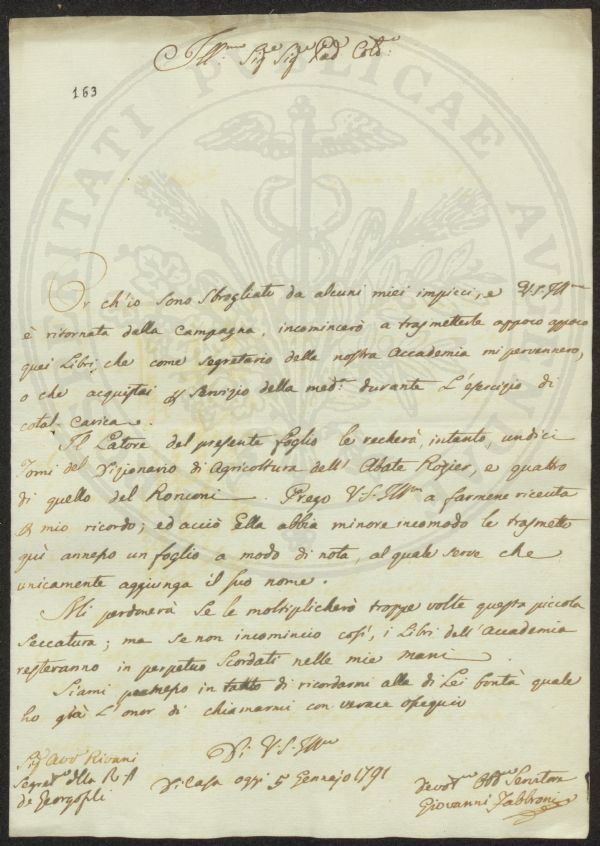 Ill.mo Sig.re Sig.re Pad. Cold.o
163
Or ch'io sono sbrogliato da alcuni miei impicci, e V.S. Ill.ma
è ritornata dalla Campagna, incomincerò a trasmetterle appoco appoco
quei Libri, che come segretario della nostra Accademia mi pervennero,
o che acquistai p servizio della med.a durante l'esercizio di
cotal Carica.
Il Latore del presente foglio le recherà, intanto, undici
Tomi del Dizionario di Agricoltura dell'Abate Rozier, e quattro
di quello del Ronconi. Prego V.S. Ill.ma a farmene ricevuta
p mio ricordo; ed acciò Ella abbia minore incomodo le trasmetto
quì annesso un foglio a modo di nota, al quale serve che
unicamente aggiunga il suo nome.
Mi perdonerà se le moltiplicherò troppe volte questa piccola
seccatura; ma se non incomincio così, i Libri dell'Accademia
resteranno in perpetuo scordati nelle mie mani.
Siami permesso in tanto di ricordarmi alla di Lei bontà quale
ho già l'onor di chiamarmi con verace ossequio
Di V.S. Ill.ma
Sig.r Avv.o Rivani
Segret.o della R. A
de Georgofili
Di Casa oggi 5 Gennajo 1791
Devot.mo Obb.mo Servitore
Giovanni Fabbroni
PROSPERITATI PUBLICAE AUGENDAE